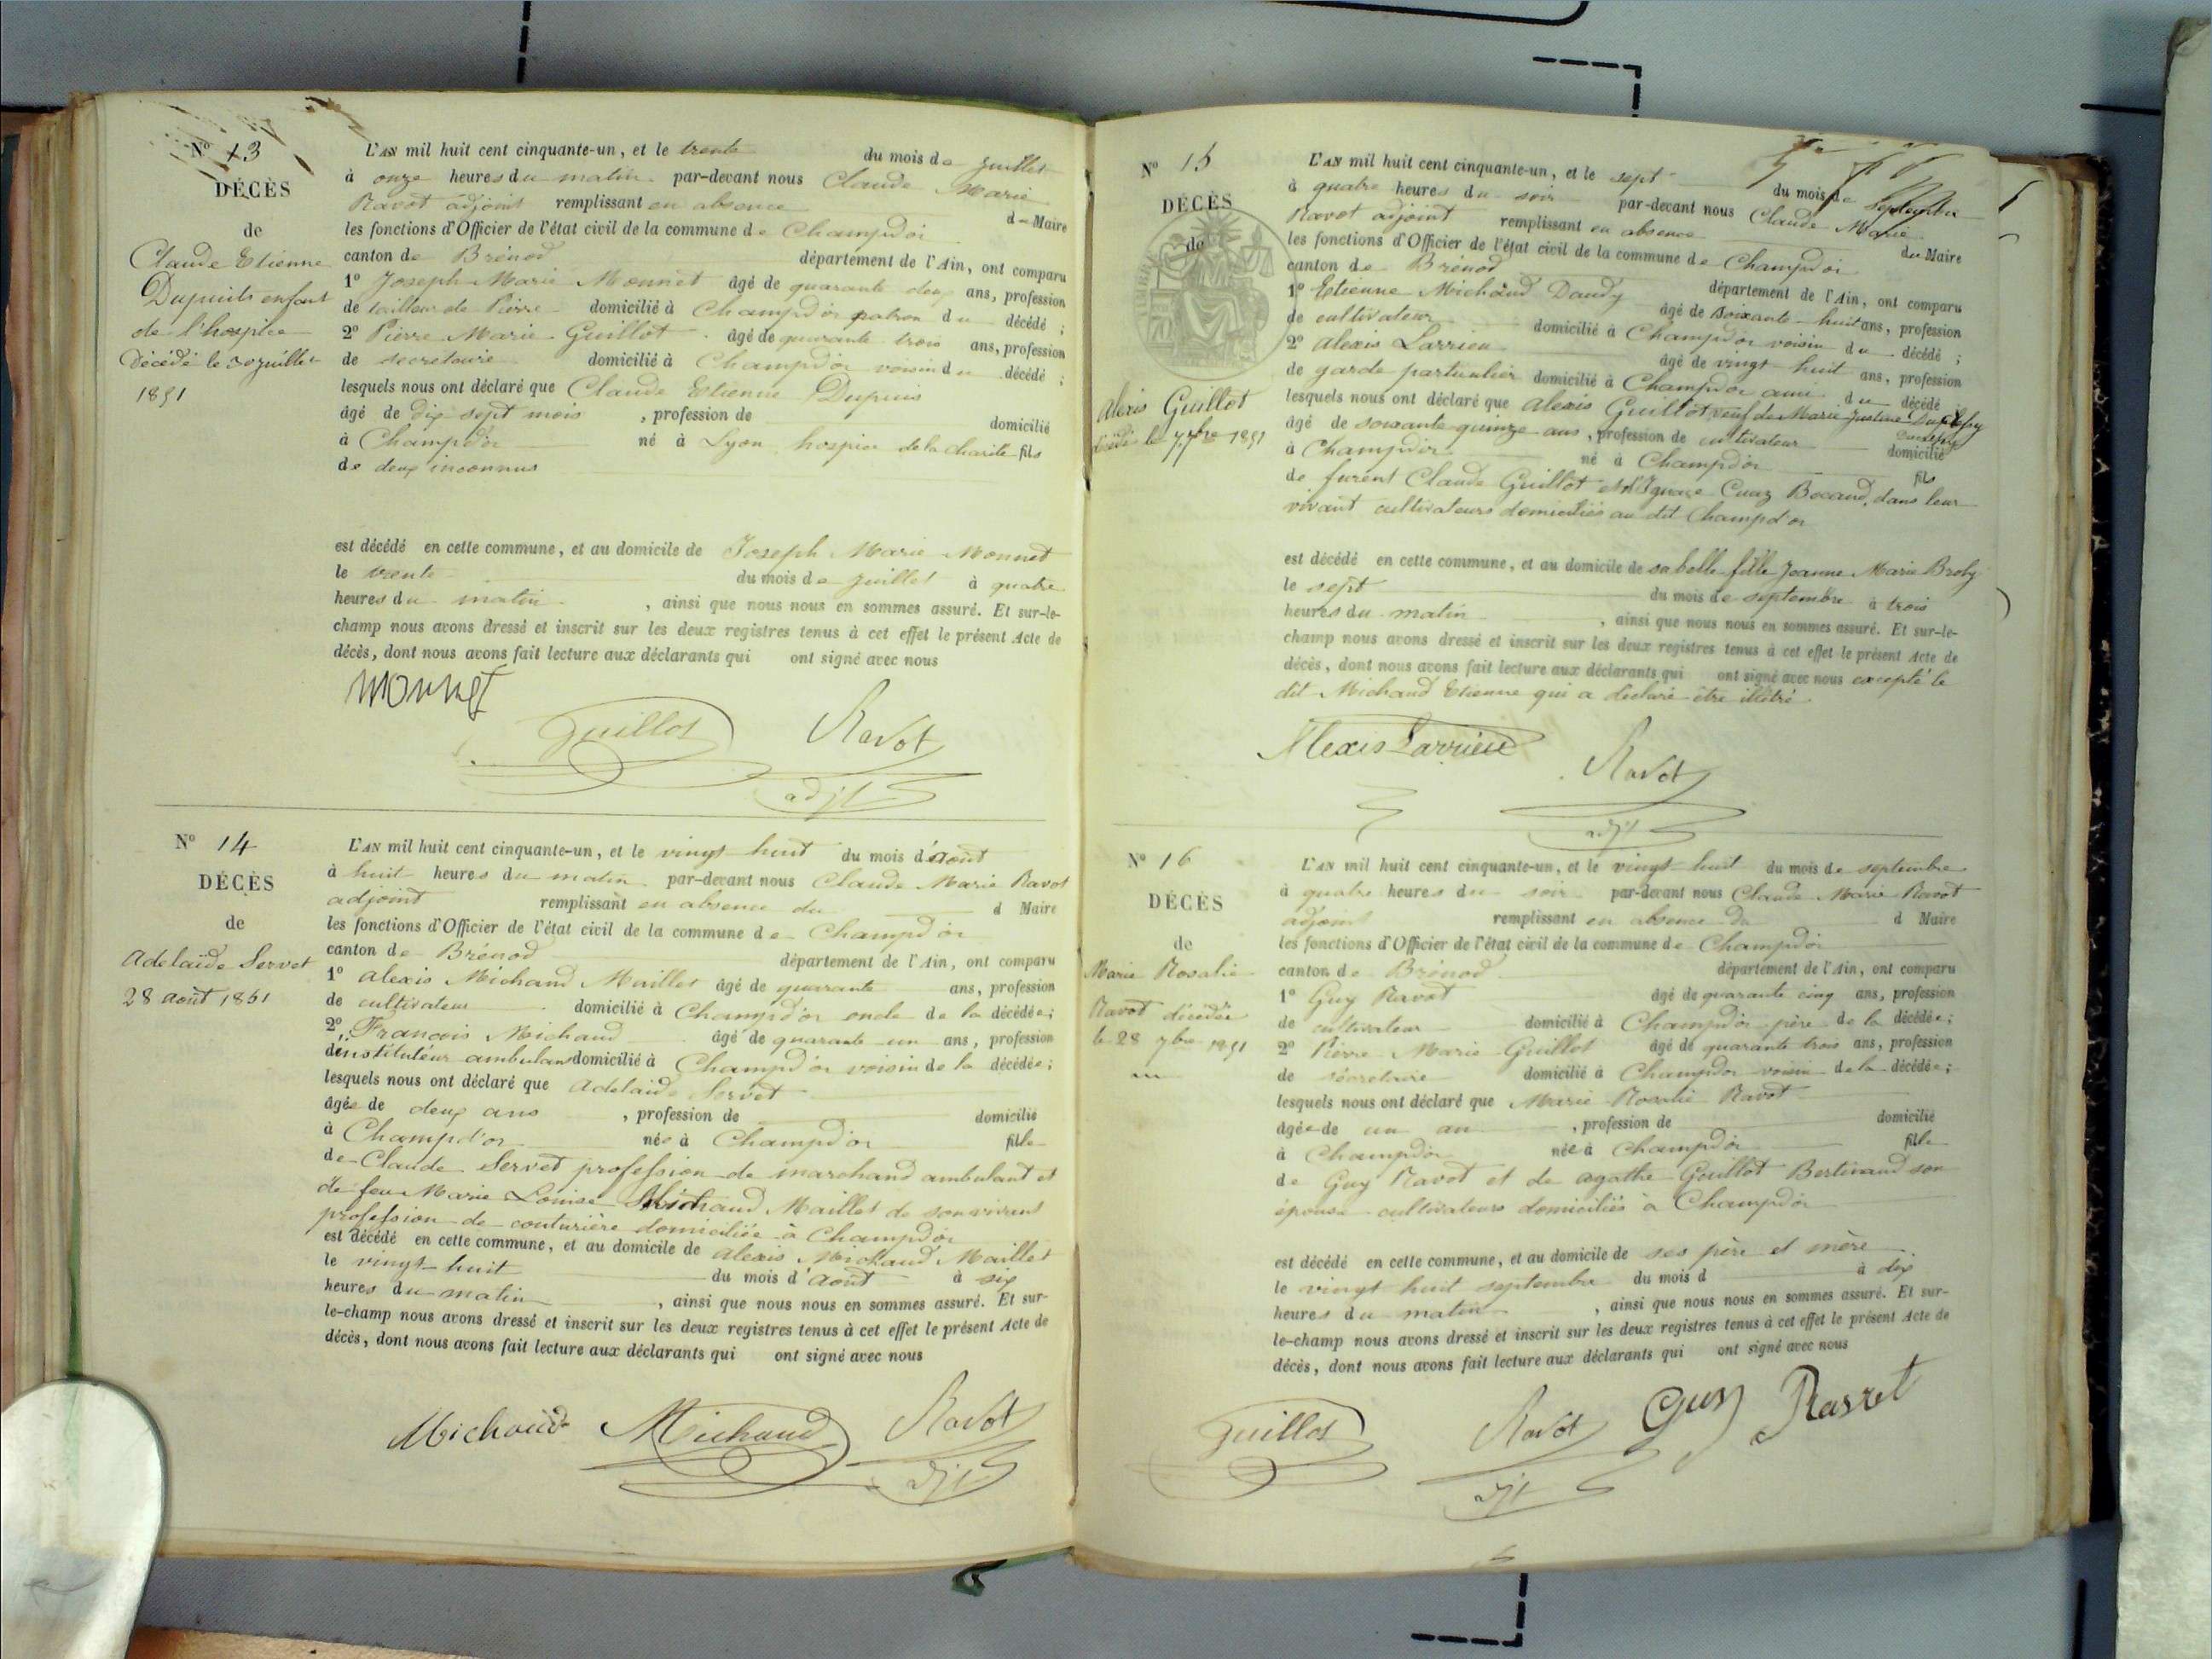 Nº 13
DÉCÈS
de
Claude Etienne
Dupuits enfant
de l'hospice
Décédé le 30 juillet
1851
L'AN mil huit cent cinquante-un, et le trente du mois de juillet
à onze heures du matin par-devant nous Claude Marie
Ravot adjoint remplissant en absence d Maire
les fonctions d'Officier de l'état civil de la commune de Champdor
canton de Brénod département de l'Ain, ont comparu
1º Joseph Marie Monnet âgé de quarante deux ans, profession
de tailleur de Pierre domicilié à Champdor patron du décédé ;
2º Pierre Marie Guillot âgé de quarante trois ans, profession
de secretaire domicilié à Champdor voisin du décédé ;
lesquels nous ont déclaré que Claude Etienne Dupuis
âgé de dix sept mois , profession de domicilié
à Champd'or né à Lyon hospice de la charité fils
de deux inconnus
est décédé en cette commune, et au domicile de Joseph Marie Monnet
le trente du mois de juillet à quatre
heures du matin , ainsi que nous nous en sommes assuré. Et sur-le-
champ nous avons dressé et inscrit sur les deux registres tenus à cet effet le présent Acte de
décès, dont nous avons fait lecture aux déclarants qui ont signé avec nous
monnet
Guillot Ravot
adjt
Nº 14
DÉCÈS
de
Adelaïde Servet
28 août 1851
L'AN mil huit cent cinquante-un, et le vingt huit du mois d'août
à huit heures du matin par-devant nous Claude Marie Ravot
adjoint remplissant en absence du d Maire
les fonctions d'Officier de l'état civil de la commune de Champd'or
canton de Brénod département de l'Ain, ont comparu
1º Alexis Michaud Maillet âgé de quarante ans, profession
de cultivateur domicilié à Champd'or oncle de la décédée ;
2º François Michaud âgé de quarante un ans, profession
d'instituteur ambulant domicilié à Champd'or voisin de la décédée ;
lesquels nous ont déclaré que Adelaide Servet
âgée de deux ans , profession de domicilié
à Champd'or née à Champd'or fille
de Claude Servet profession de marchand ambulant et
de feu Marie Louise Michaud Maillet de son vivant
profession de couturière domiciliée à Champdor
est décédé en cette commune, et au domicile de Alexis Michaud Maillet
le vingt-huit du mois d'Août à six
heures du matin , ainsi que nous nous en sommes assuré. Et sur-
le-champ nous avons dressé et inscrit sur les deux registres tenus à cet effet le présent Acte de
décès, dont nous avons fait lecture aux déclarants qui ont signé avec nous
Michaud Michaud Ravot
adjt
Nº 15
DÉCÈS
de
Alexis Guillot
décédé le 7 7bre 1851
L'AN mil huit cent cinquante-un, et le sept du mois de septembre
à quatre heures du soir par-devant nous Claude Marie
Ravot adjoint remplissant en absence du Maire
les fonctions d'Officier de l'état civil de la commune de Champdor
canton de Brénod département de l'Ain, ont comparu
1º Etienne Michaud Dandy âgé de soixante-huit ans, profession
de cultivateur domicilié à Champdor voisin du décédé ;
2º Alexis Larrieu âgé de vingt huit ans, profession
de garde particulier domicilié à Champdor ami du décédé
lesquels nous ont déclaré que Alexis Guillot veuf de Marie Justine
âgé de soixante quinze ans, profession de cultivateur domicilié
à Champdor né à Champd'or fils
de furent Claude Guillot et Cuaz Bocaud, dans leur
vivant cultivateurs domiciliés au dit Champd'or
est décédé en cette commune, et au domicile de sa belle fille Jeanne Marie
le sept du mois de septembre à trois
heures du matin , ainsi que nous nous en sommes assuré. Et sur-le-
champ nous avons dressé et inscrit sur les deux registres tenus à cet effet le présent Acte de
décès, dont nous avons fait lecture aux déclarants qui ont signé avec nous excepté le
dit Michaud Etienne qui a declaré être illétré
Alexis Larrieu
Ravot
adjt
Nº 16
DÉCÈS
de
Marie Rosalie
Ravot décédée
le 28 7bre 1851
L'AN mil huit cent cinquante-un, et le vingt-huit du mois de septembre
à quatre heures du soir par-devant nous Claude Marie Ravot
adjoint remplissant en absence du d Maire
les fonctions d'Officier de l'état civil de la commune de Champdor
canton de Brénod département de l'Ain, ont comparu
1º Guy Ravot âgé de quarante cinq ans, profession
de cultivateur domicilié à Champdor père de la décédée ;
2º Pierre Marie Guillot âgé de quarante trois ans, profession
de sécretaire domicilié à Champdor voisin de la décédée ;
lesquels nous ont déclaré que Marie Rosalie Ravot
âgée de un an , profession de domicilié
à Champdor née à Champdor fille
de Guy Ravot et de agathe Guillot Bertinaud son
épouse cultivateurs domiciliés à Champdor
est décédé en cette commune, et au domicile de ses père et mère
le vingt huit septembre du mois d à dix
heures du matin , ainsi que nous nous en sommes assuré. Et sur-
le-champ nous avons dressé et inscrit sur les deux registres tenus à cet effet le présent Acte de
décès, dont nous avons fait lecture aux déclarants qui ont signé avec nous
Guillot Ravot Guy Ravet
adjt